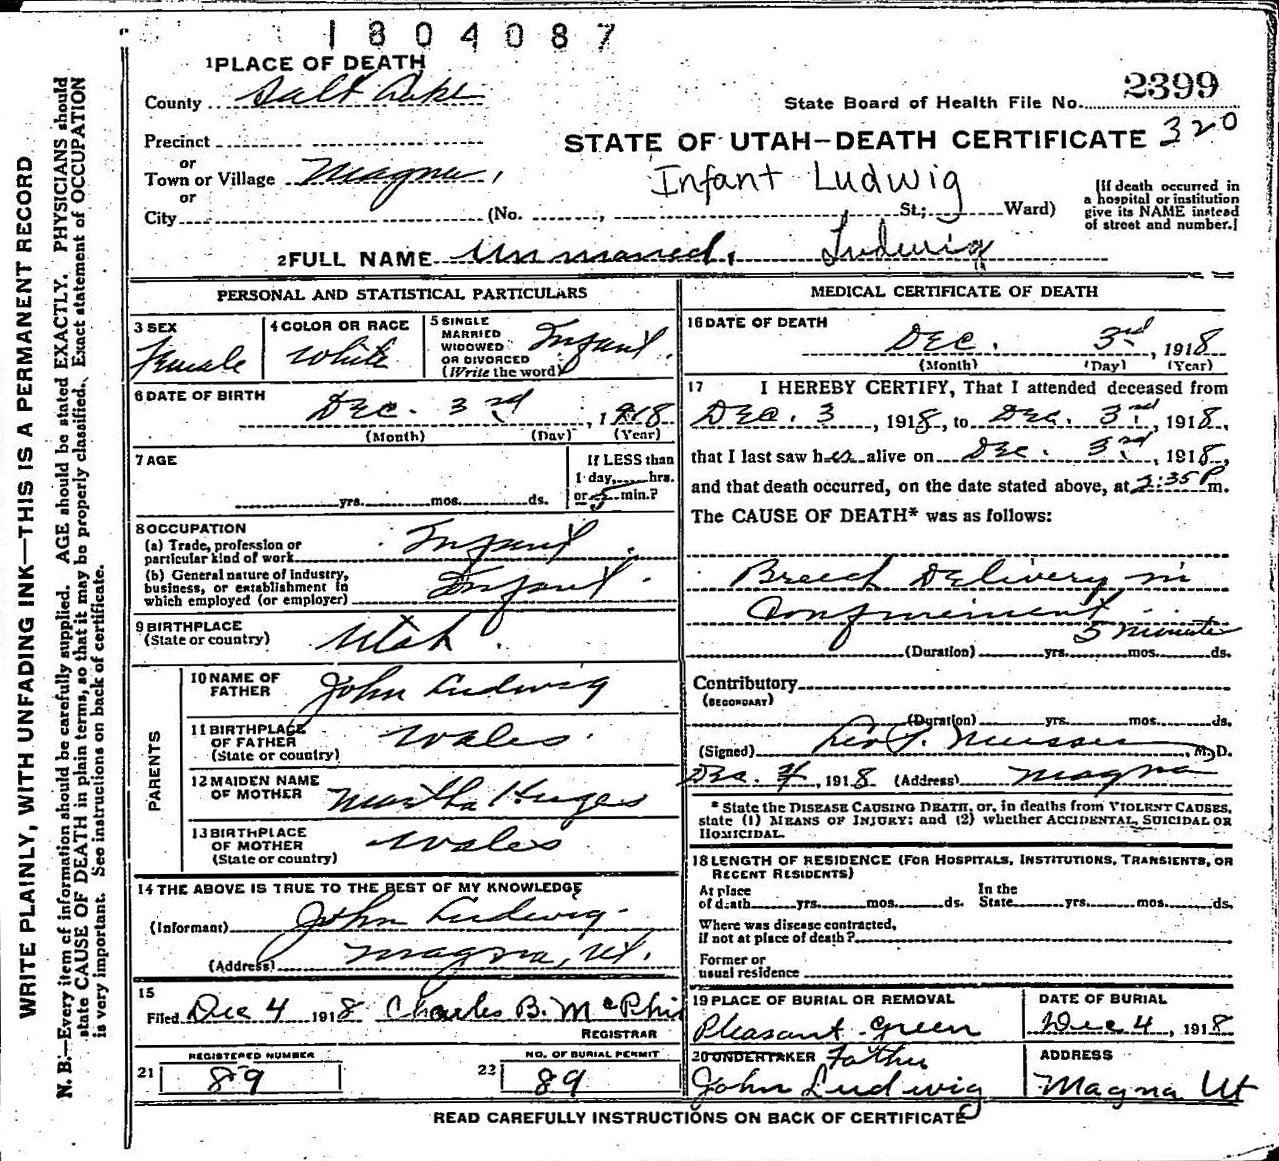 1804087
1 PLACE OF DEATH
County Salt Lake
2399
State Board of Health File No.
Precinct
STATE OF UTAH—DEATH CERTIFICATE 320
or
Town or Village Magna,
Infant Ludwig
or
City (No. , St.; Ward)
[If death occurred in
a hospital or institution
give its NAME instead
of street and number.]
2 FULL NAME Unnamed, Ludwig
PERSONAL AND STATISTICAL PARTICULARS
3 SEX
Female
4 COLOR OR RACE
White
5 SINGLE
MARRIED
WIDOWED
OR DIVORCED
(Write the word)
Infant
6 DATE OF BIRTH
Dec. 3rd, 1918
(Month) (Day) (Year)
7 AGE
yrs. mos. ds.
If LESS than
1 day, hrs.
or 5 min.?
8 OCCUPATION
(a) Trade, profession or
particular kind of work Infant
(b) General nature of industry,
business, or establishment in
which employed (or employer) Infant
9 BIRTHPLACE
(State or country) Utah
PARENTS
10 NAME OF
FATHER John Ludwig
11 BIRTHPLACE
OF FATHER
(State or country) Wales
12 MAIDEN NAME
OF MOTHER Martha Huges
13 BIRTHPLACE
OF MOTHER
(State or country) Wales
14 THE ABOVE IS TRUE TO THE BEST OF MY KNOWLEDGE
(Informant) John Ludwig
(Address) Magna, Ut.
15
Filed Dec 4 1918 Charles B. McPhi
REGISTRAR
REGISTERED NUMBER
21 89
NO. OF BURIAL PERMIT
22 89
MEDICAL CERTIFICATE OF DEATH
16 DATE OF DEATH
Dec. 3rd, 1918
(Month) (Day) (Year)
17 I HEREBY CERTIFY, That I attended deceased from
Dec. 3, 1918, to Dec. 3rd, 1918,
that I last saw her alive on Dec. 3rd, 1918,
and that death occurred, on the date stated above, at 2:35 P m.
The CAUSE OF DEATH* was as follows:
Breech Delivery in
Confinement
5 minutes
(Duration) yrs. mos. ds.
Contributory
(SECONDARY)
(Duration) yrs. mos. ds.
(Signed) , M. D.
Dec. 4, 1918 (Address) Magna
* State the DISEASE CAUSING DEATH, or, in deaths from VIOLENT CAUSES,
state (1) MEANS OF INJURY; and (2) whether ACCIDENTAL, SUICIDAL OR
HOMICIDAL.
18 LENGTH OF RESIDENCE (FOR HOSPITALS, INSTITUTIONS, TRANSIENTS, OR
RECENT RESIDENTS)
At place
of death yrs. mos. ds.
In the
State yrs. mos. ds.
Where was disease contracted,
if not at place of death?
Former or
usual residence
19 PLACE OF BURIAL OR REMOVAL
Pleasant Green
DATE OF BURIAL
Dec 4, 1918
20 UNDERTAKER Father
John Ludwig
ADDRESS
Magna Ut
READ CAREFULLY INSTRUCTIONS ON BACK OF CERTIFICATE
WRITE PLAINLY, WITH UNFADING INK—THIS IS A PERMANENT RECORD
N. B.—Every item of information should be carefully supplied. AGE should be stated EXACTLY. PHYSICIANS should
state CAUSE OF DEATH in plain terms, so that it may be properly classified. Exact statement of OCCUPATION
is very important. See instructions on back of certificate.